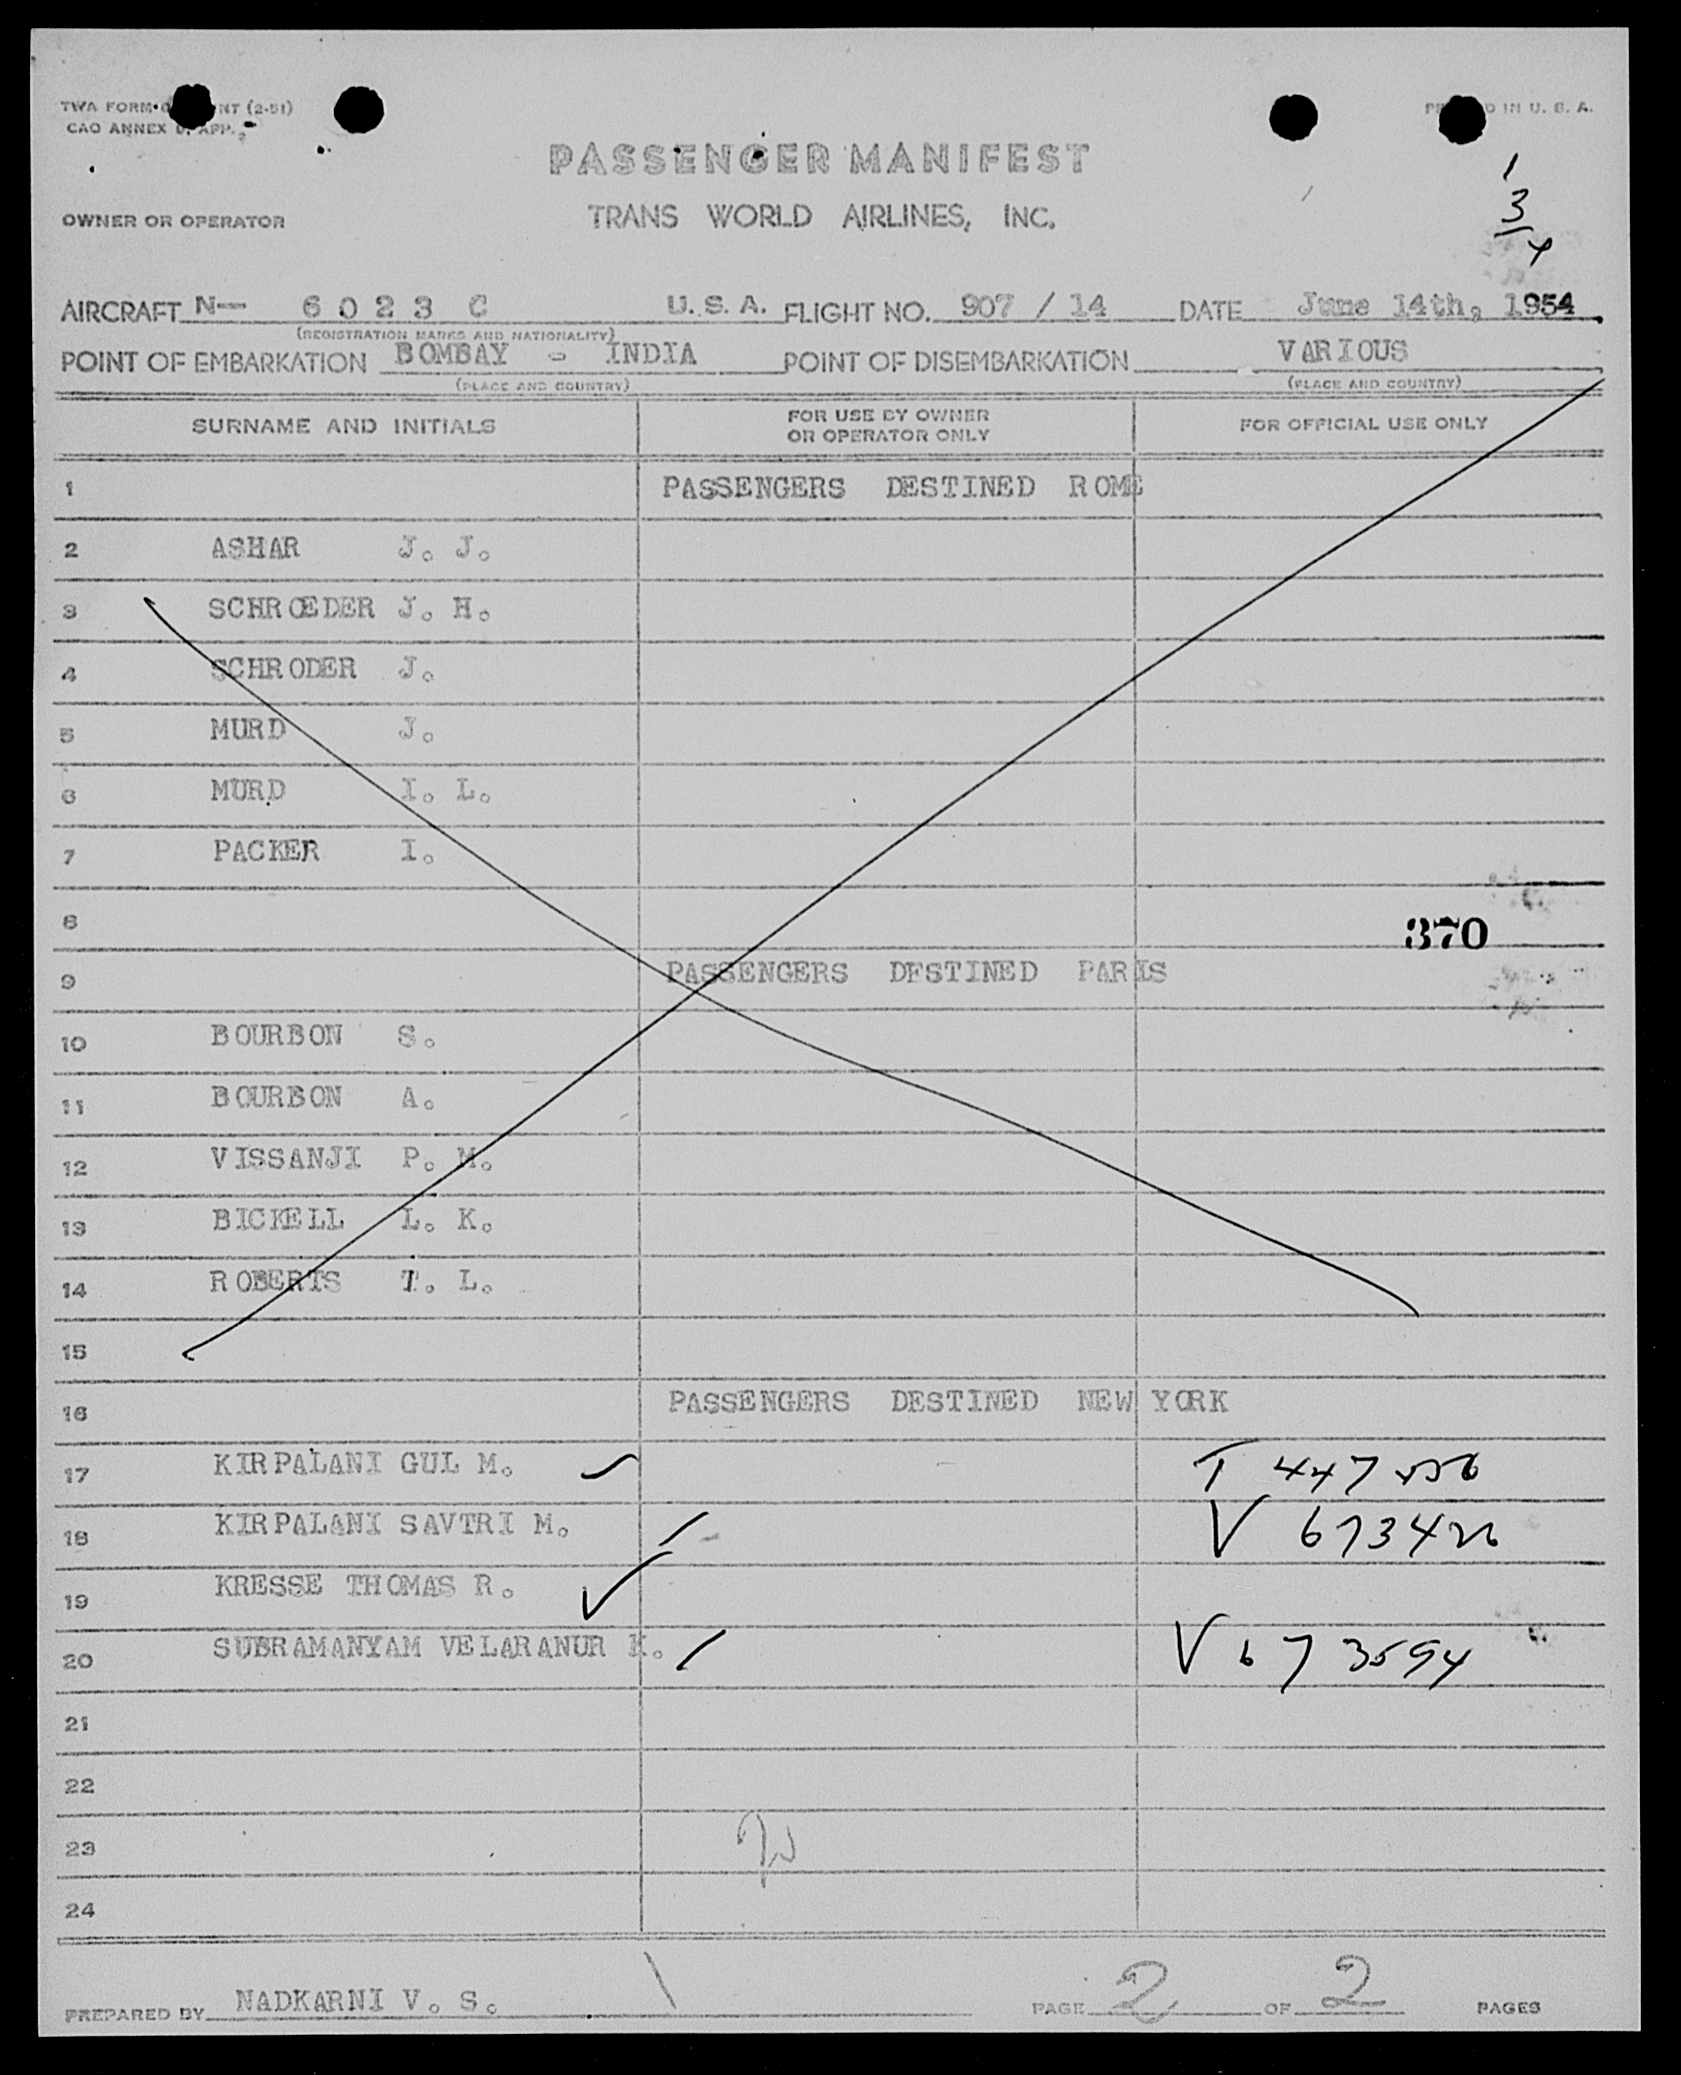 TWA FORM NT (2-51)
CAO ANNEX APP. 2
U. S. A.
PASSENGER MANIFEST
1
3
4
OWNER OR OPERATOR
TRANS WORLD AIRLINES, INC.
AIRCRAFT N— 6 0 2 3 C U. S. A. FLIGHT NO. 907 / 14 DATE June 14th, 1954.
(REGISTRATION MARKS AND NATIONALITY)
POINT OF EMBARKATION BOMBAY - INDIA POINT OF DISEMBARKATION VARIOUS
(PLACE AND COUNTRY) (PLACE AND COUNTRY)
SURNAME AND INITIALS FOR USE BY OWNER OR OPERATOR ONLY FOR OFFICIAL USE ONLY
1 PASSENGERS DESTINED ROME
2 ASHAR J. J.
3 SCHROEDER J. H.
4 SCHRODER J.
5 MURD J.
6 MURD I. L.
7 PACKER I.
8 370
9 PASSENGERS DESTINED PARIS
10 BOURBON S.
11 BOURBON A.
12 VISSANJI P. M.
13 BICKELL L. K.
14 ROBERTS T. L.
15
16 PASSENGERS DESTINED NEW YORK
17 KIRPALANI GUL M. T 447
18 KIRPALANI SAVTRI M. V
19 KRESSE THOMAS R.
20 SUBRAMANYAM VELARANUR K. V 673594
21
22
23
24
PREPARED BY NADKARNI V. S. PAGE 2 OF 2 PAGES